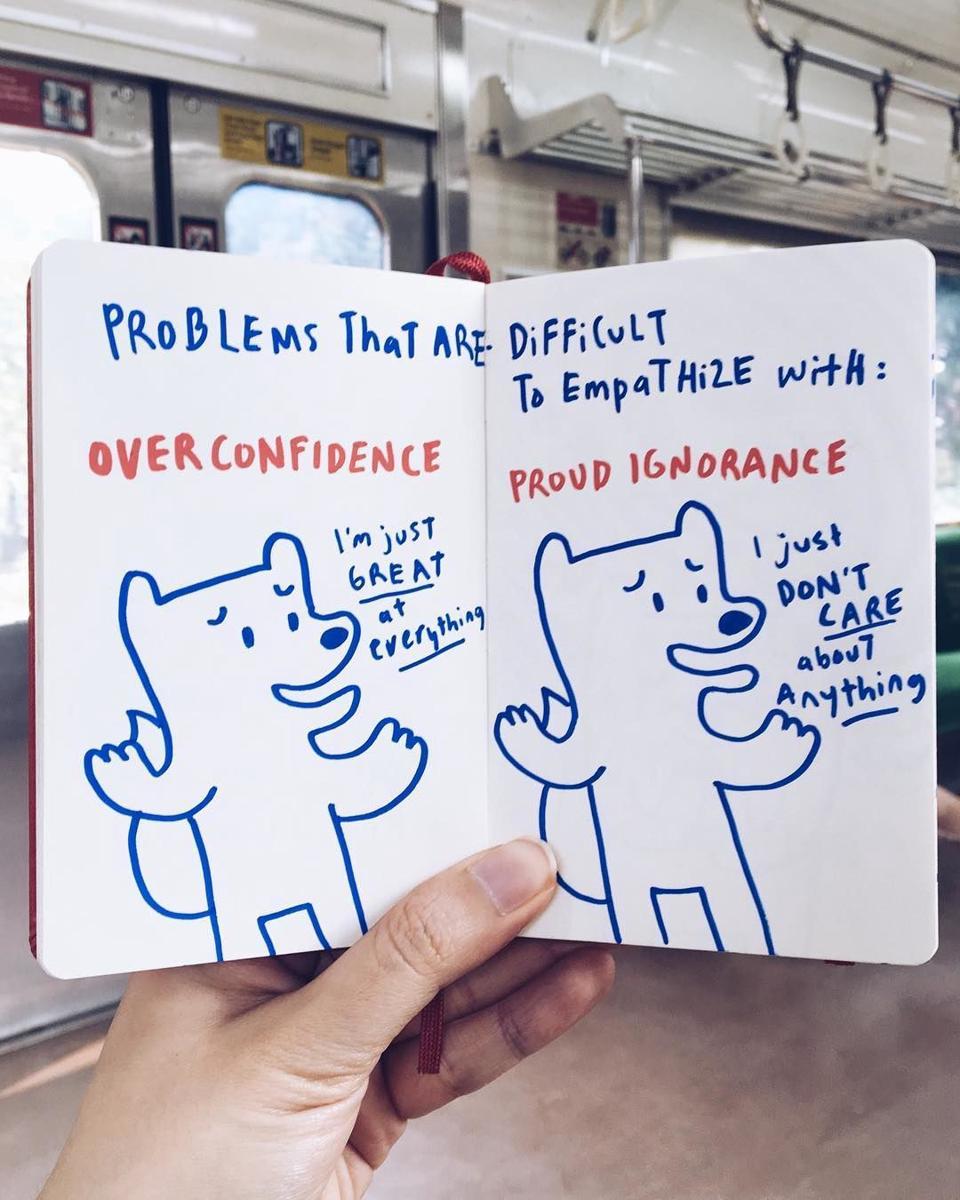 PROBLEMS ThaT ARE DiFFiCULT
To EmpaTHiZE witH:
OVERCONFIDENCE
I'm jusT
GREAT
at
everything
PROUD IGNORANCE
I just
DON'T
CARE
abouT
Anything